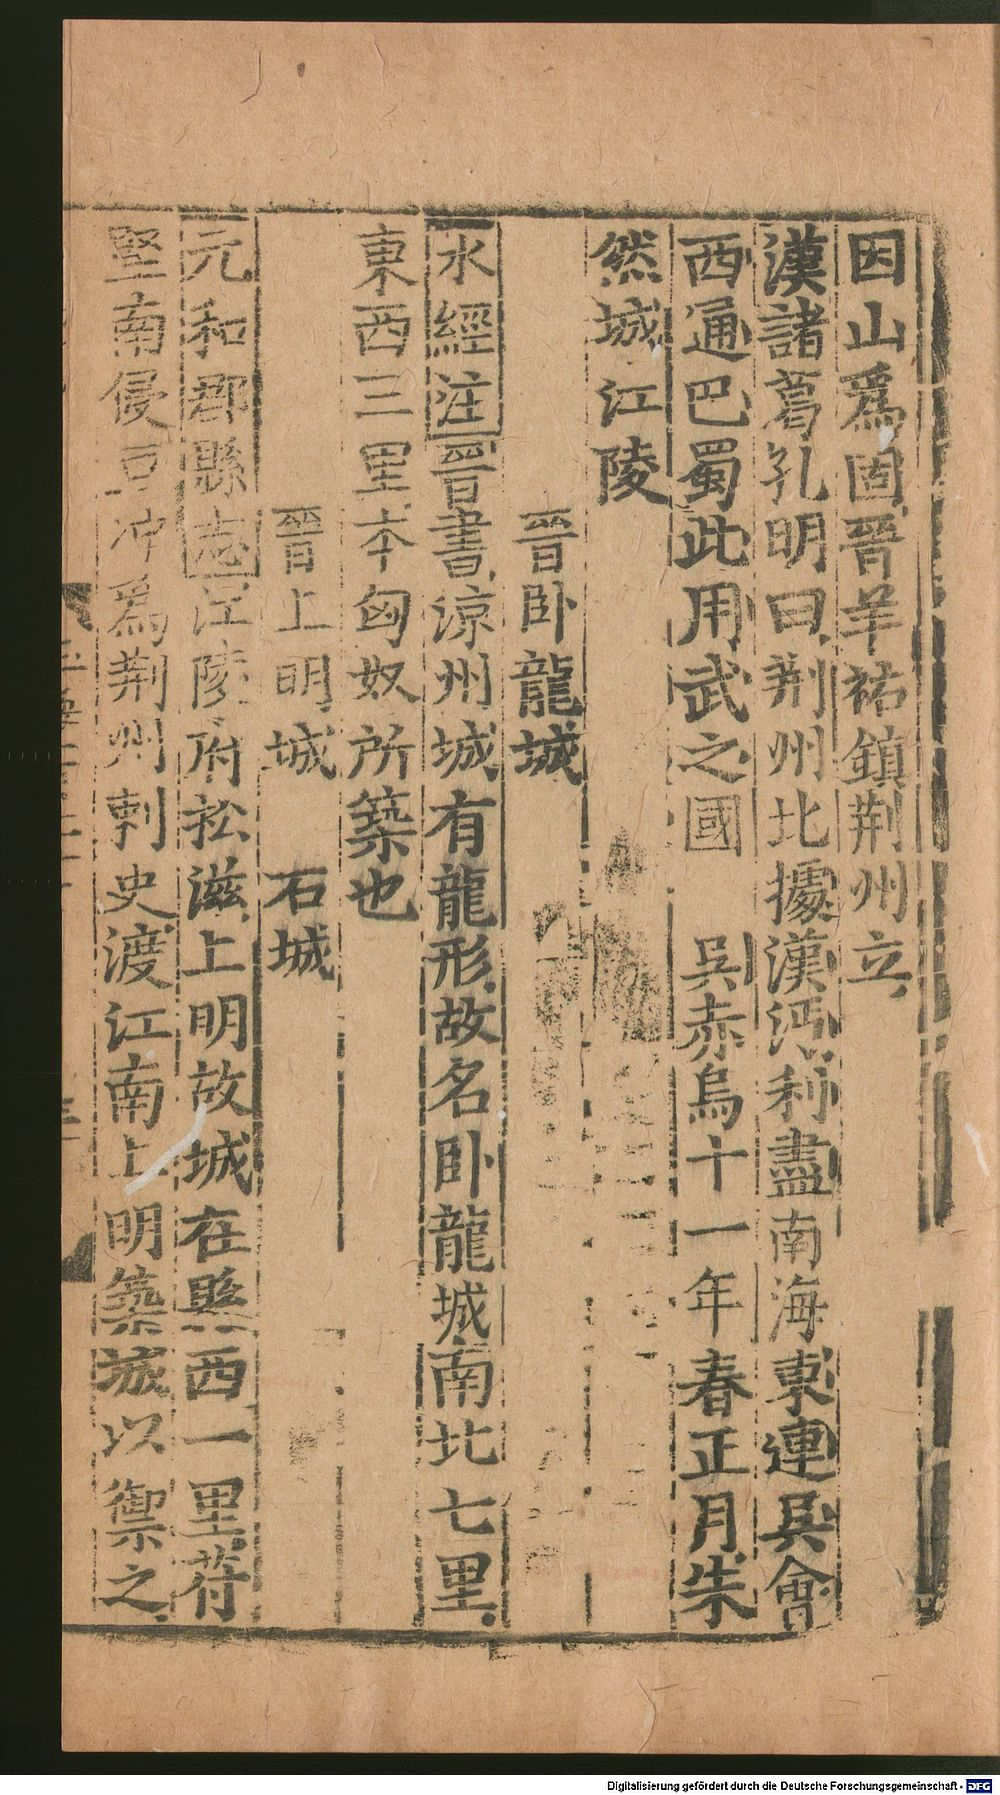 因山爲固晉羊祜鎮荆州立
漢諸葛孔明曰荆州北據漢沔利盡南海東連吳會
西通巴蜀此用武之國 吳赤烏十一年春正月朱
然城江陵
晉卧龍城
水經注晉書涼州城有龍形故名卧龍城南北七里
東西三里本匈奴所築也
晉上明城 石城
元和郡縣志江陵府松滋上明故城在縣西一里苻
堅南侵豆冲爲荆州刺史渡江南上明築城以禦之
Digitalisierung gefördert durch die Deutsche Forschungsgemeinschaft - DFG